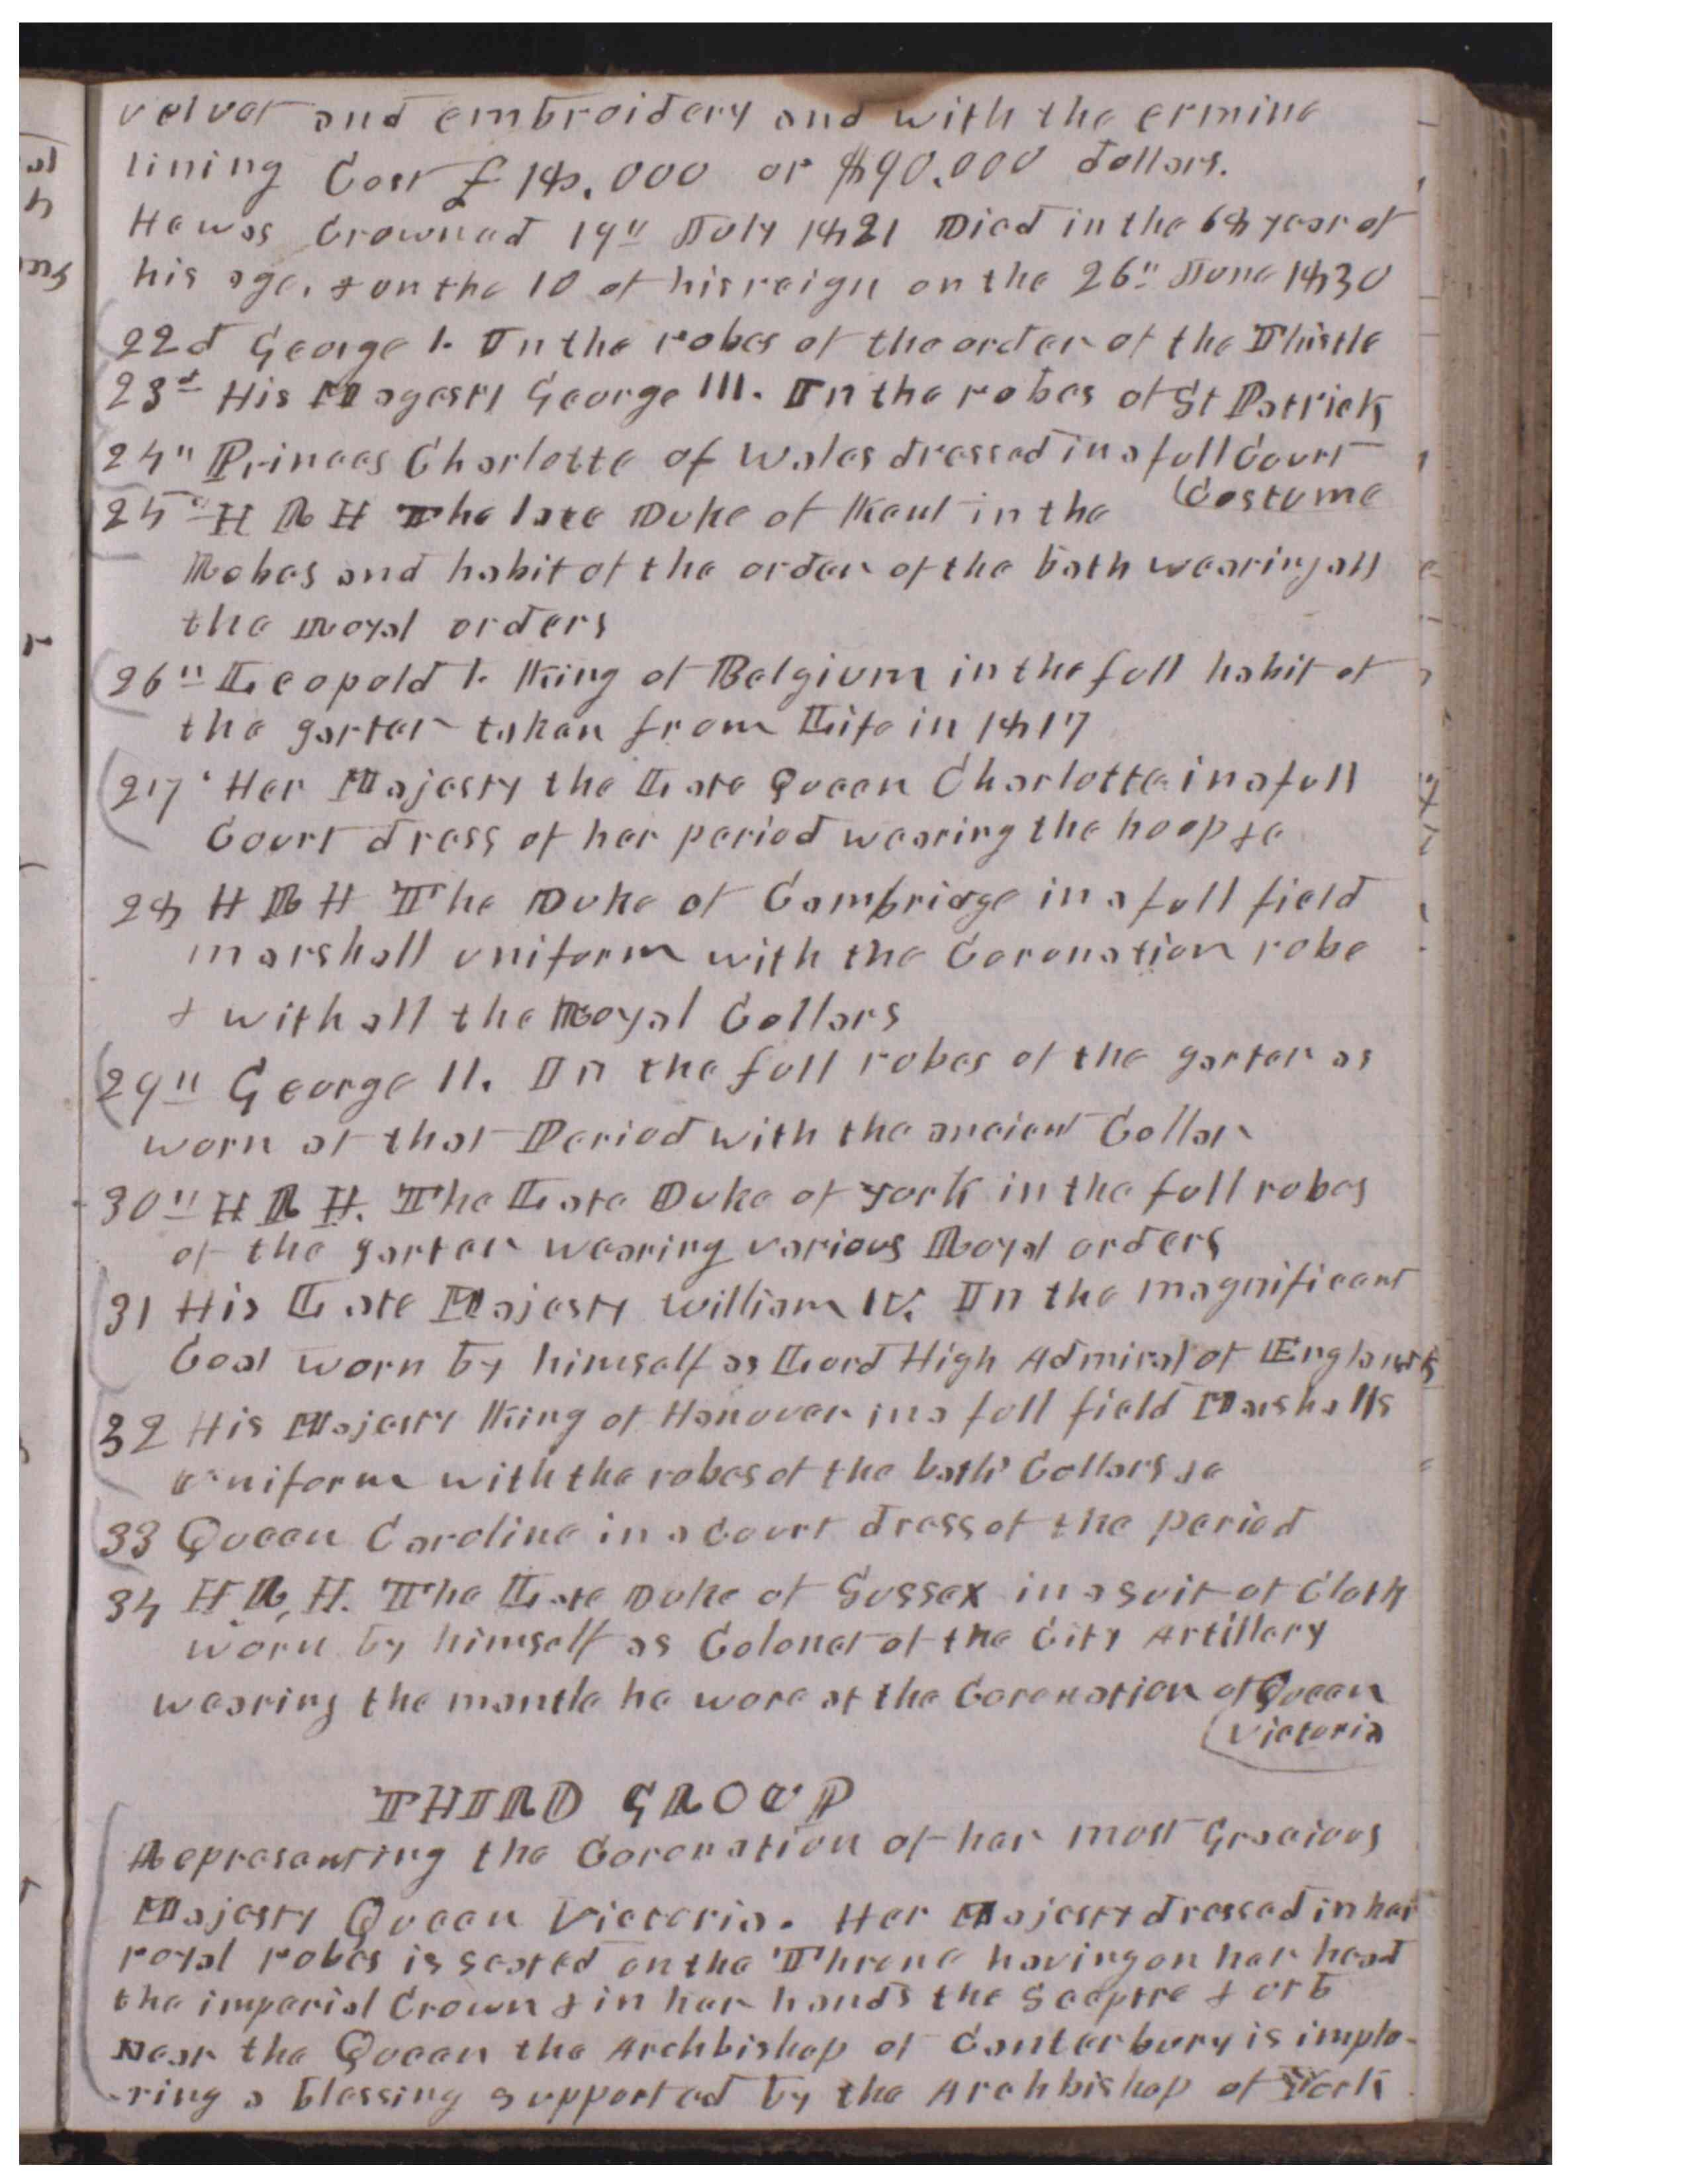 velvet and embroidery and with the ermine
lining Cost £ 18.000 or $90.000 dollars.
He was Crowned 19" July 1821 Died in the 68 year of
his age, & on the 10 of his reign on the 26" June 1830
22d George I. In the robes of the order of the Thistle
23d His Magesty George III. In the robes of St Patrick
24" Princes Charlotte of Wales dressed in a full Court
Costume
25" H R H The late Duke of Kent in the
Robes and habit of the order of the bath wearing all
the Royal orders
26" Leopold I. King of Belgium in the full habit of
the garter taken from Life in 1817
27' Her Majesty the Late Queen Charlotte in a full
Court dress of her period wearing the hoop &c
28 H R H The Duke of Cambridge in a full field
marshall uniform with the Coronation robe
& with all the Royal Collars
29" George II. In the full robes of the garter as
worn at that Period with the ancient Collar
30" H R H. The Late Duke of York in the full robes
of the garter wearing various Royal orders
31 His Late Majesty William IV. In the magnificent
Coat worn by himself as Lord High Admiral of England
32 His Majesty King of Hanover in a full field Marshalls
uniform with the robes of the bath Collars &c
33 Queen Caroline in a Court dress of the period
34 H R, H. The Late Duke of Sussex in a suit of Cloth
worn by himself as Colonel of the City Artillery
wearing the mantle he wore at the Coronation of Queen
Victoria
THIRD GROUP
Representing the Coronation of her most Gracious
Majesty Queen Victoria. Her Majesty dressed in her
royal robes is seated on the Throne having on her head
the imperial Crown & in her hands the Sceptre & orb
Near the Queen the Archbishop of Canterbury is implo-
ring a blessing supported by the Archbishop of York